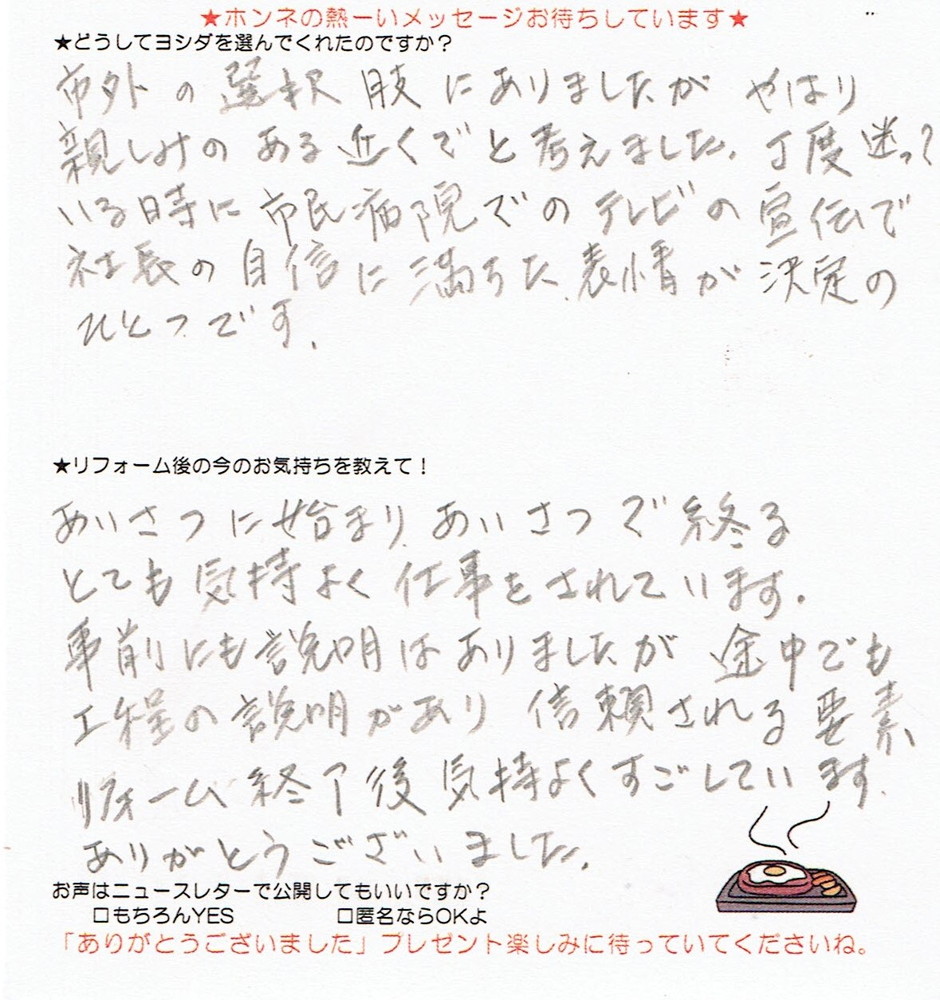 ★ホンネの熱ーいメッセージお待ちしています★
★どうしてヨシダを選んでくれたのですか？
市外の選択肢にありましたが やはり
親しみのある近くでと考えました。丁度迷って
いる時に市民病院でのテレビの宣伝で
社長の自信に満ちた表情が決定の
ひとつです。
★リフォーム後の今のお気持ちを教えて！
あいさつに始まり あいさつで終る
とても気持よく仕事をされています。
事前にも説明はありましたが 途中でも
工程の説明があり 信頼される要素
リフォーム終了後気持よくすごしています。
ありがとうございました。
お声はニュースレターで公開してもいいですか？
□もちろんYES □匿名ならOKよ
「ありがとうございました」プレゼント楽しみに待っていてくださいね。